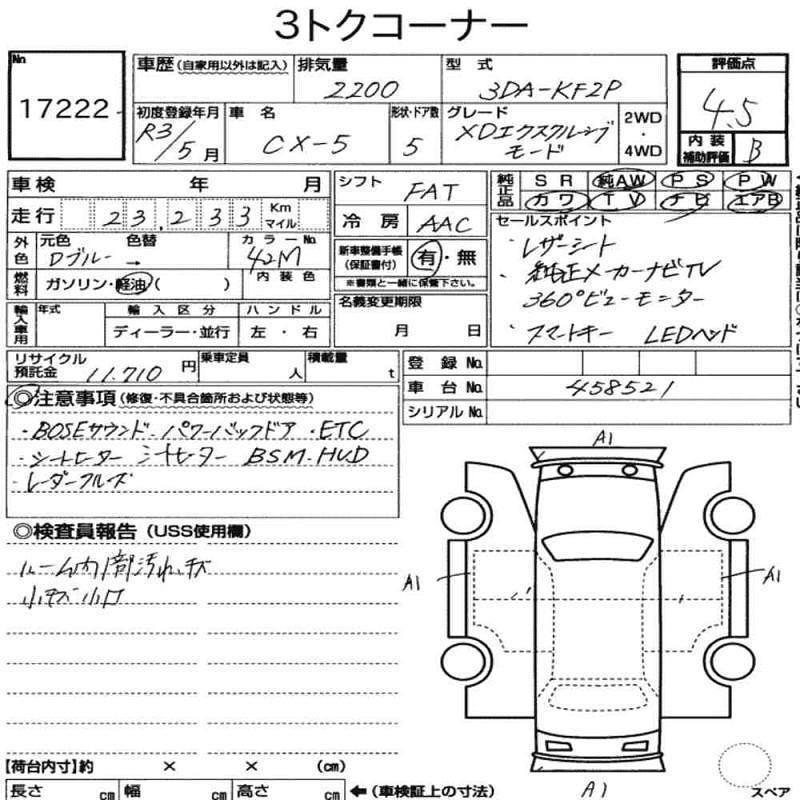 3トクコーナー
No 17222
車歴 (自家用以外は記入) 排気量 2200 型式 3DA-KF2P 評価点 4.5
初度登録年月 R3/5月 車名 CX-5 形状・ドア数 5 グレード XDエクスクルーシブモード 2WD・4WD 内装補助評価 B
車検 年 月 シフト FAT 純正品 SR 純AW PS PW
カワ TV ナビ エアB
走行 23,233 Km マイル 冷房 AAC セールスポイント
・レザーシート
外色 元色 Dブルー 色替 → カラーNo. 42M 新車整備手帳(保証書付) 有・無
※書類と一緒に保管下さい。
・純正メーカーナビTV
360°ビューモニター
燃料 ガソリン・軽油( ) 内装色 名義変更期限 月 日
・スマートキー LEDヘッド
輸入車用 年式 輸入区分 ディーラー・並行 ハンドル 左・右
リサイクル預託金 11,710円 乗車定員 人 積載量 t 登録No.
車台No. 458521
シリアルNo.
◎注意事項 (修復・不具合箇所および状態等)
・BOSEサウンド・パワーバックドア・ETC
・シートヒーター シートヒーター BSM.HUD
・レーダークルーズ
A1
◎検査員報告 (USS使用欄)
ルーム内部汚れ、キズ
小キズ小凹
A1
A1
【荷台内寸】約 × × (cm)
長さ cm 幅 cm 高さ cm ←(車検証上の寸法)
A1
スペア